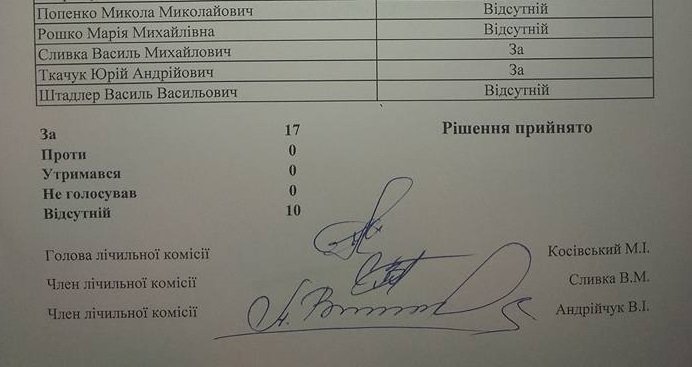 Попенко Микола Миколайович Відсутній
Рошко Марія Михайлівна Відсутній
Сливка Василь Михайлович За
Ткачук Юрій Андрійович За
Штадлер Василь Васильович Відсутній
За 17 Рішення прийнято
Проти 0
Утримався 0
Не голосував 0
Відсутній 10
Голова лічильної комісії Косівський М.І.
Член лічильної комісії Сливка В.М.
Член лічильної комісії Андрійчук В.І.